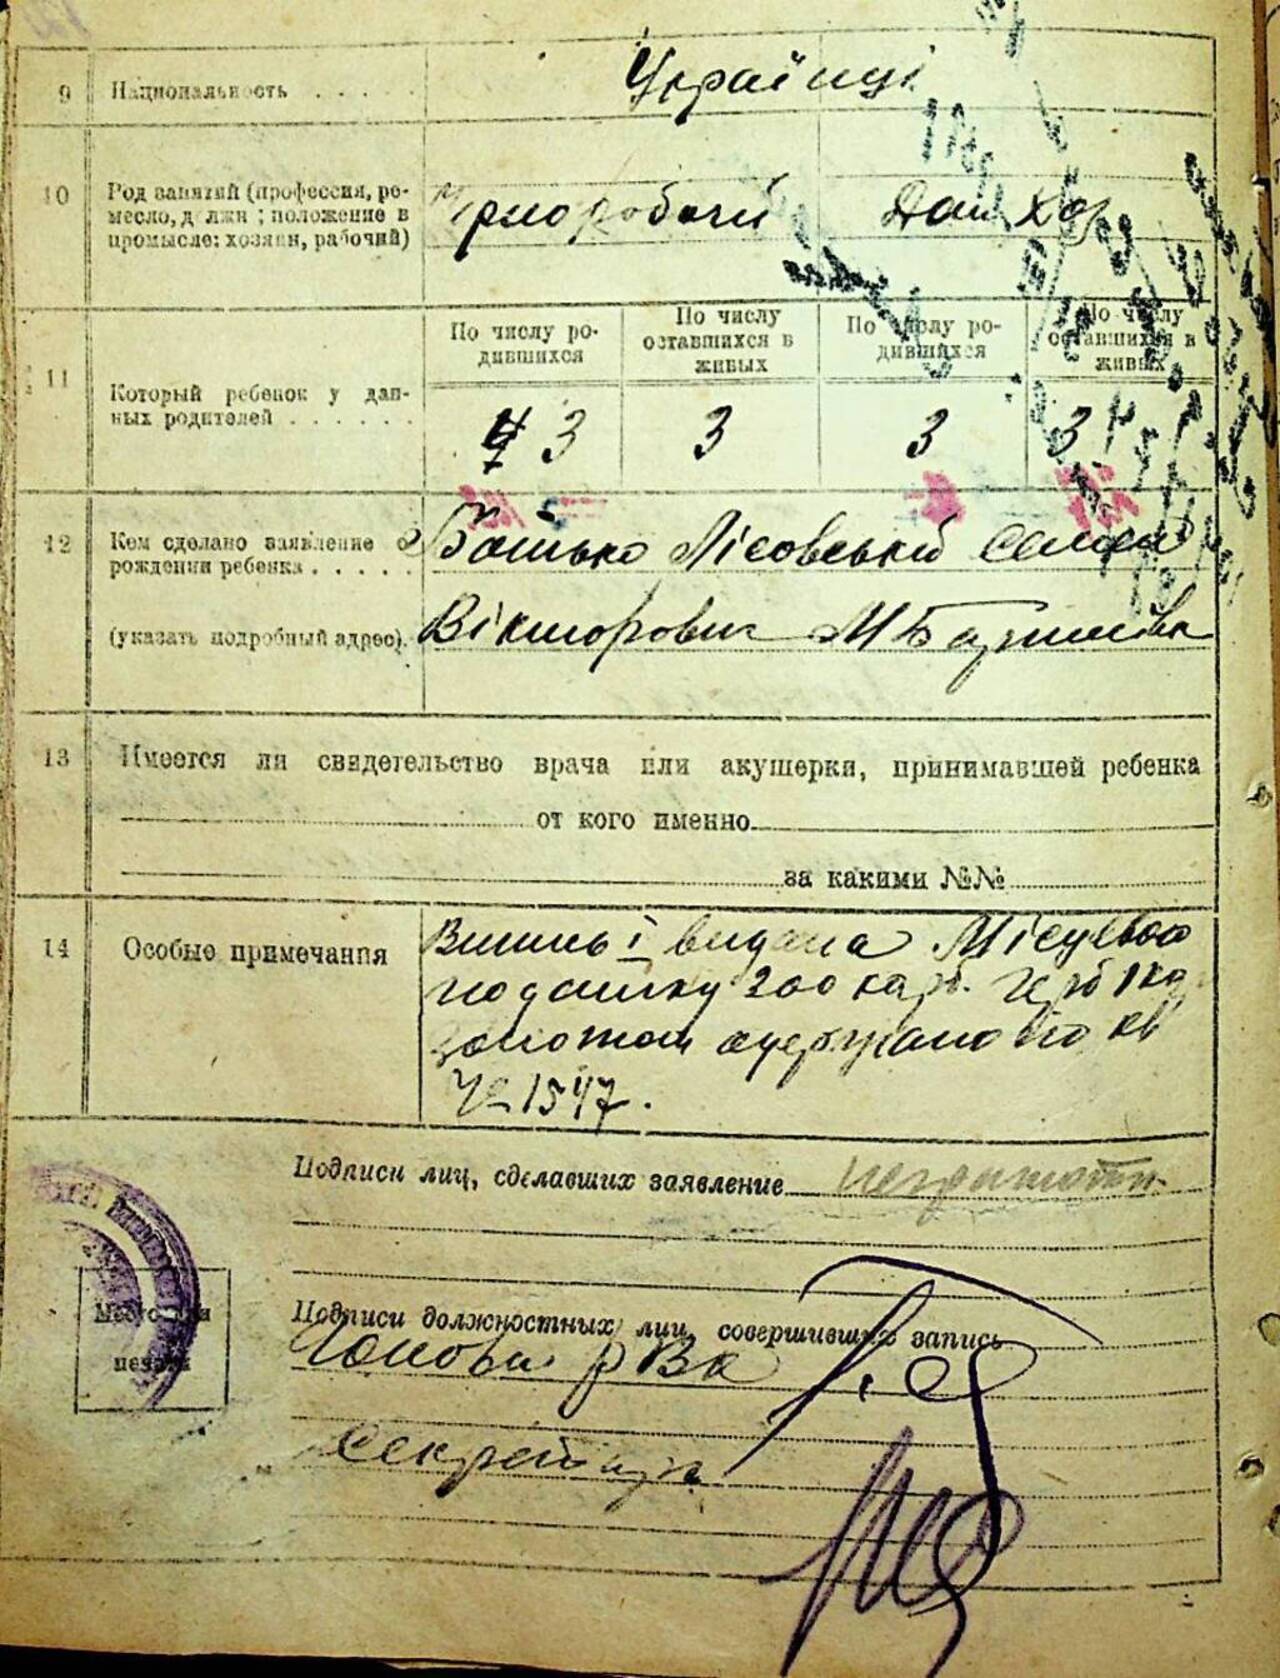 9 Национальность . . . . . Українці
10 Род занятий (профессия, ре-
месло, должн; положение в
промысле: хозяин, рабочий)
Чорноробочий Дом. Хоз
11 Который ребенок у дан-
ных родителей . . . . . .
По числу ро-
дившихся
По числу
оставшихся в
живых
По числу ро-
дившихся
По числу
оставшихся в
живых
4 3 3 3 3
12 Кем сделано заявление о
рождении ребенка . . . . .
(указать подробный адрес).
Батько Лісовський Семен
Вікторович М Баришівка
13 Имеется ли свидетельство врача или акушерки, принимавшей ребенка
от кого именно
за какими №№
14 Особые примечания
Випись і видана Місцевого
податку 200 карб. Герб 1 кар
золотом одержано по кв
№ 1547.
Подписи лиц, сделавших заявление неграмотн.
Подписи должностных лиц, совершивших запись
Голова РВК
Секретарь
Место для
печати